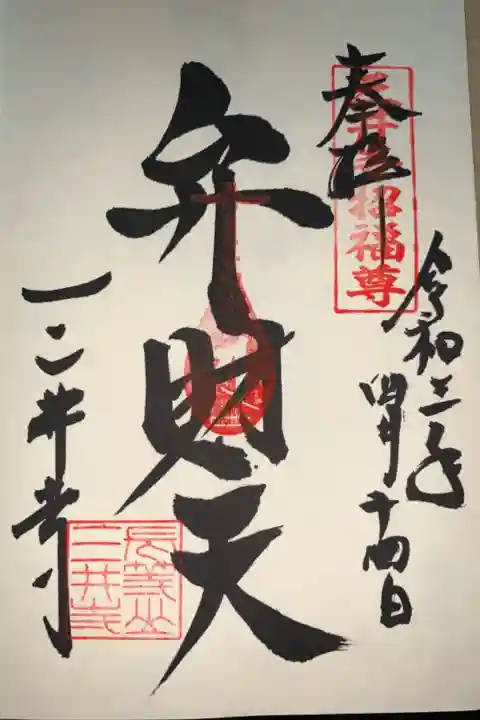 奉拝
三井寺招福尊
令和三年
四月十四日
弁財天
三井寺
長等山
三井寺